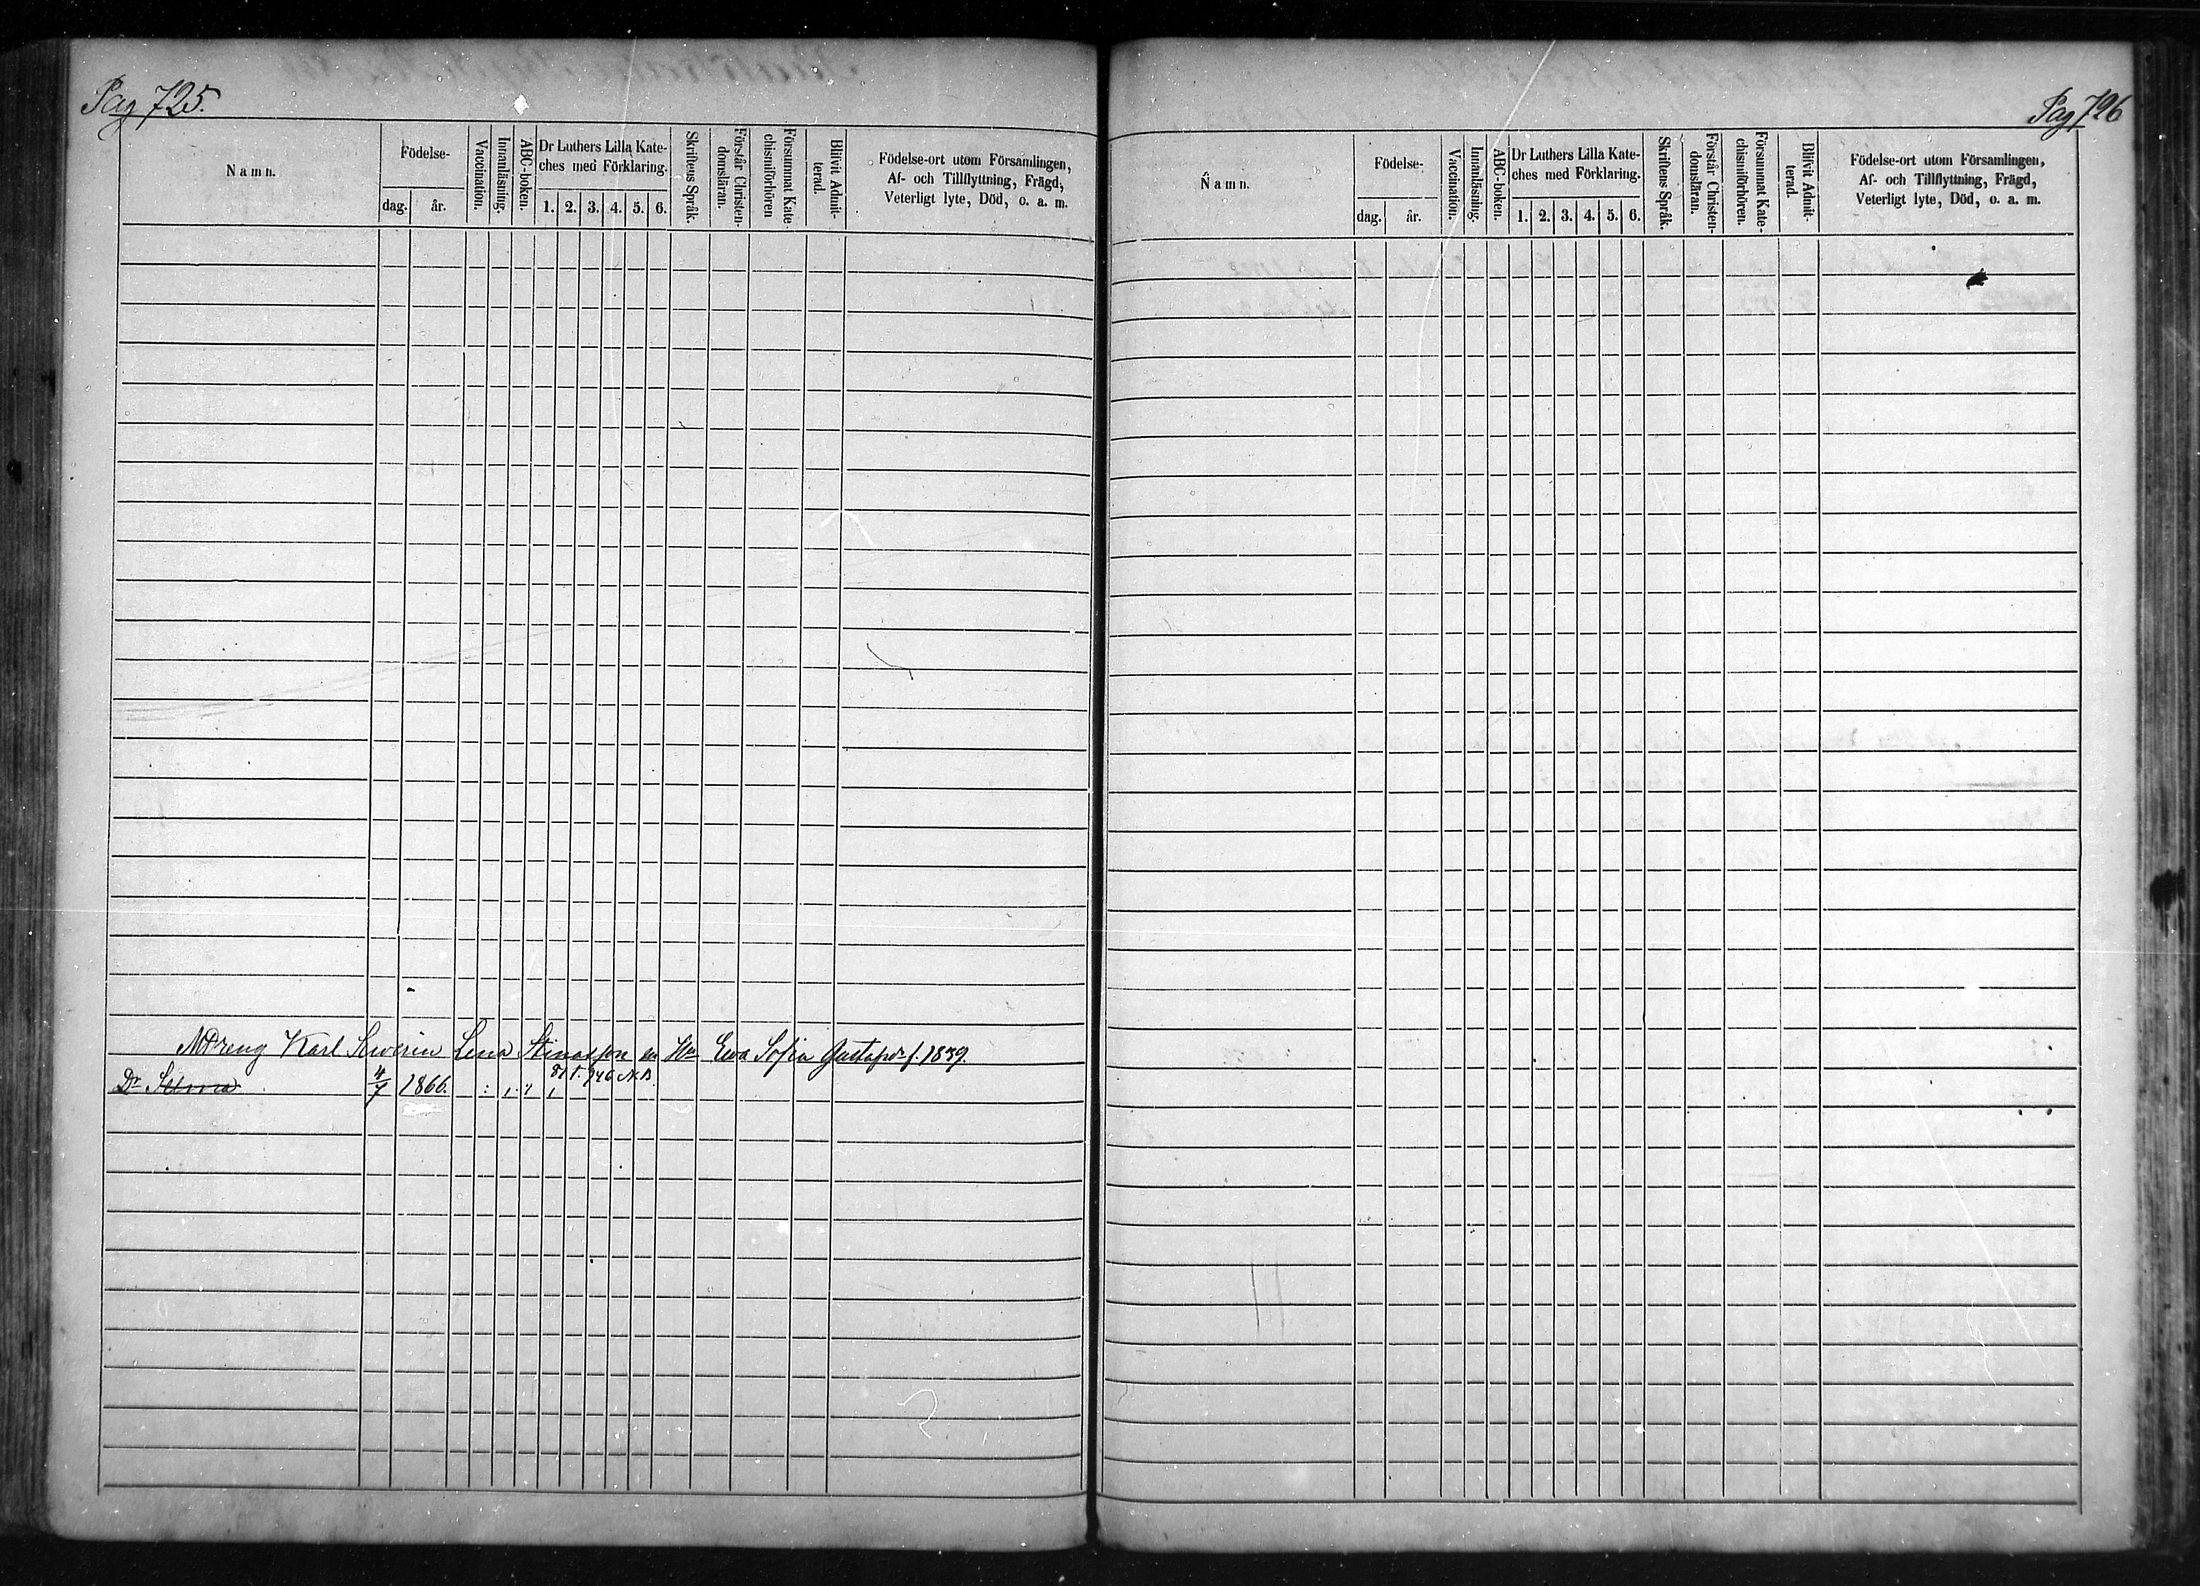 Pag 725.
Namn.
Födelse-
dag.
år.
Vaccination.
Innanläsning.
ABC-boken.
Dr Luthers Lilla Kate-
ches med Förklaring.
1. 2. 3. 4. 5. 6.
Skriftens Språk.
Förstår Christen-
domsläran.
Försummat Kate
chismiförhören
Blifvit Admit-
terad.
Födelse-ort utom Församlingen,
Af- och Tillflyttning, Frägd,
Veterligt lyte, Död, o. a. m.
Karl Severin Lena Stinasson Eva Sofia Gustafsd f. 1839.
Dr Selma 4/7 1866.
Pag 726
Namn.
Födelse-
dag.
år.
Vaccination.
Innanläsning.
ABC-boken.
Dr Luthers Lilla Kate-
ches med Förklaring.
1. 2. 3. 4. 5. 6.
Skriftens Språk.
Förstår Christen-
domsläran.
Försummat Kate-
chismiförhören.
Blifvit Admit-
terad.
Födelse-ort utom Församlingen,
Af- och Tillflyttning, Frägd,
Veterligt lyte, Död, o. a. m.